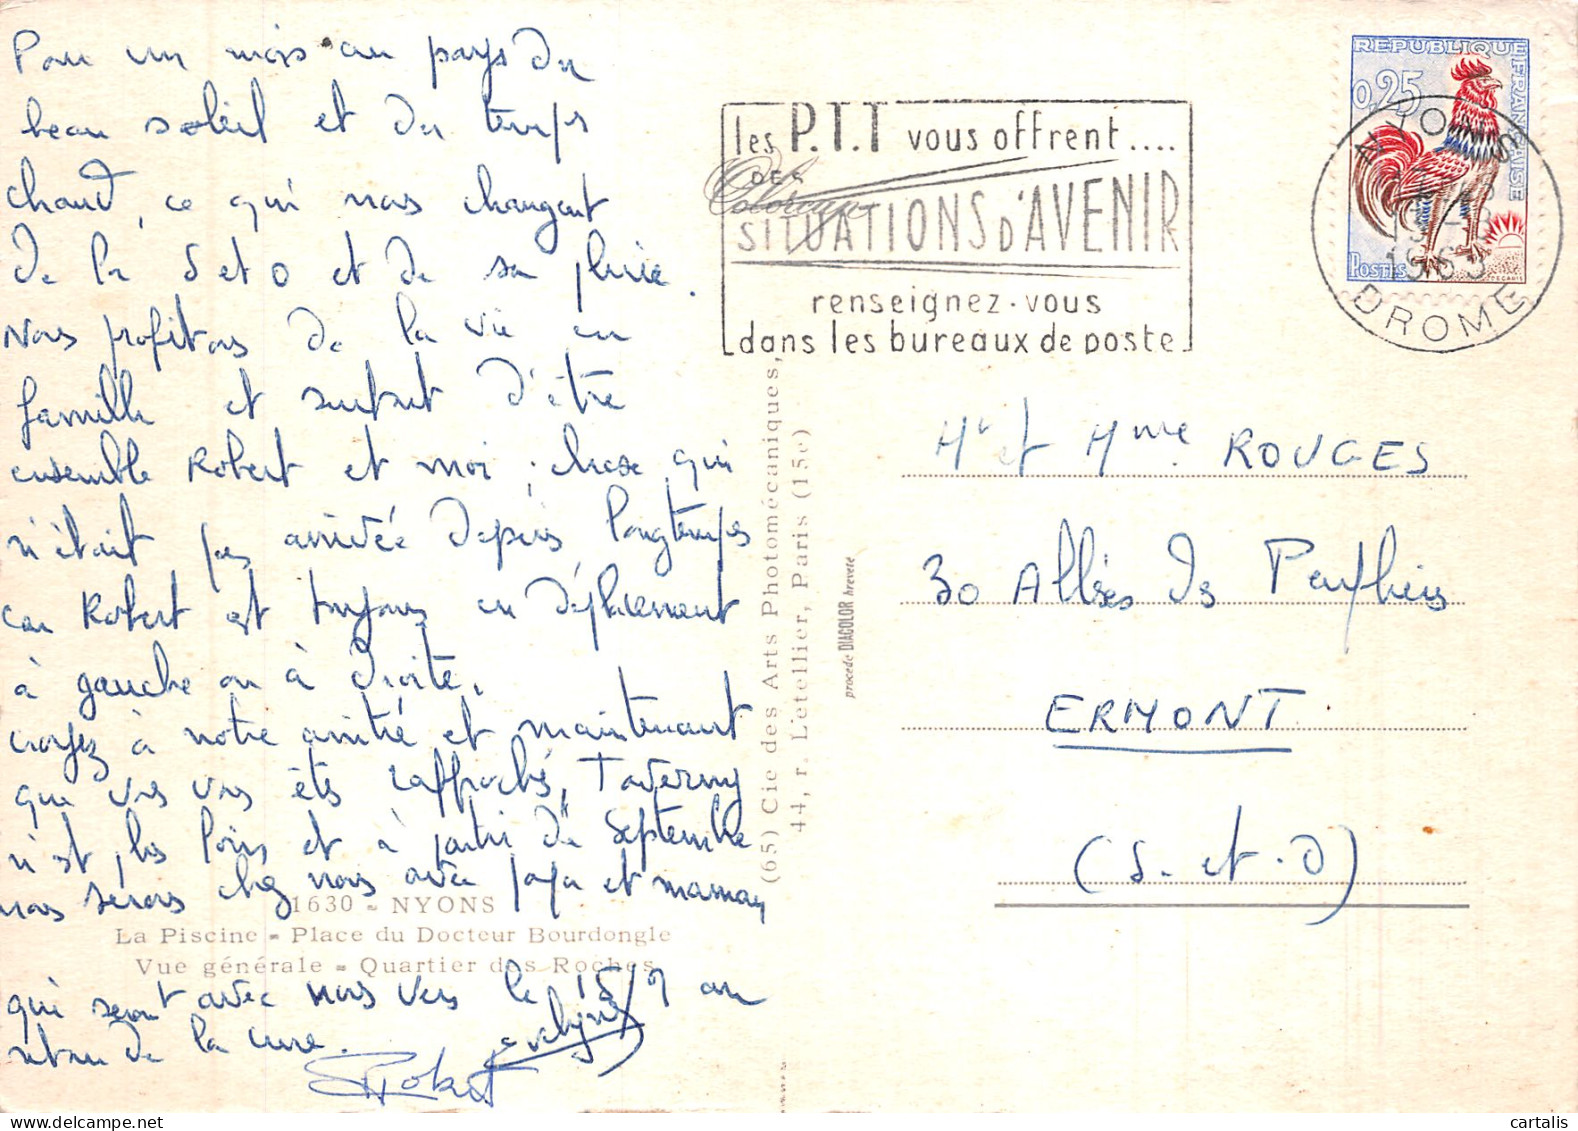 Pour un mois au pays du
beau soleil et du temps
chaud, ce qui nous changent
de la S et O et de sa pluie.
Nous profitons de la vie en
famille et surtout d'être
ensemble Robert et moi ; chose qui
n'était pas arrivée depuis longtemps
car Robert est toujours en déplacement
à gauche ou à droite.
croyez à notre amitié et maintenant
que vous vous êtes rapprochés, Taverny
n'est plus loin et à partir du Septembre
nous serons chez nous avec papa et maman
1630 - NYONS
La Piscine - Place du Docteur Bourdongle
Vue générale - Quartier des Roches
qui seront avec nous vers le 15/9 au
retour de la cure.
Evelyne
Robert
(65) Cie des Arts Photomécaniques,
44, r. Letellier, Paris (15e)
procédé DIACOLOR breveté
les P.T.T vous offrent....
DES
SITUATIONS D'AVENIR
renseignez-vous
dans les bureaux de poste
REPUBLIQUE FRANÇAISE
0,25
POSTES
NYONS
DROME
Mr et Mme ROUGES
30 Allées des Peupliers
ERMONT
(S. et. O)